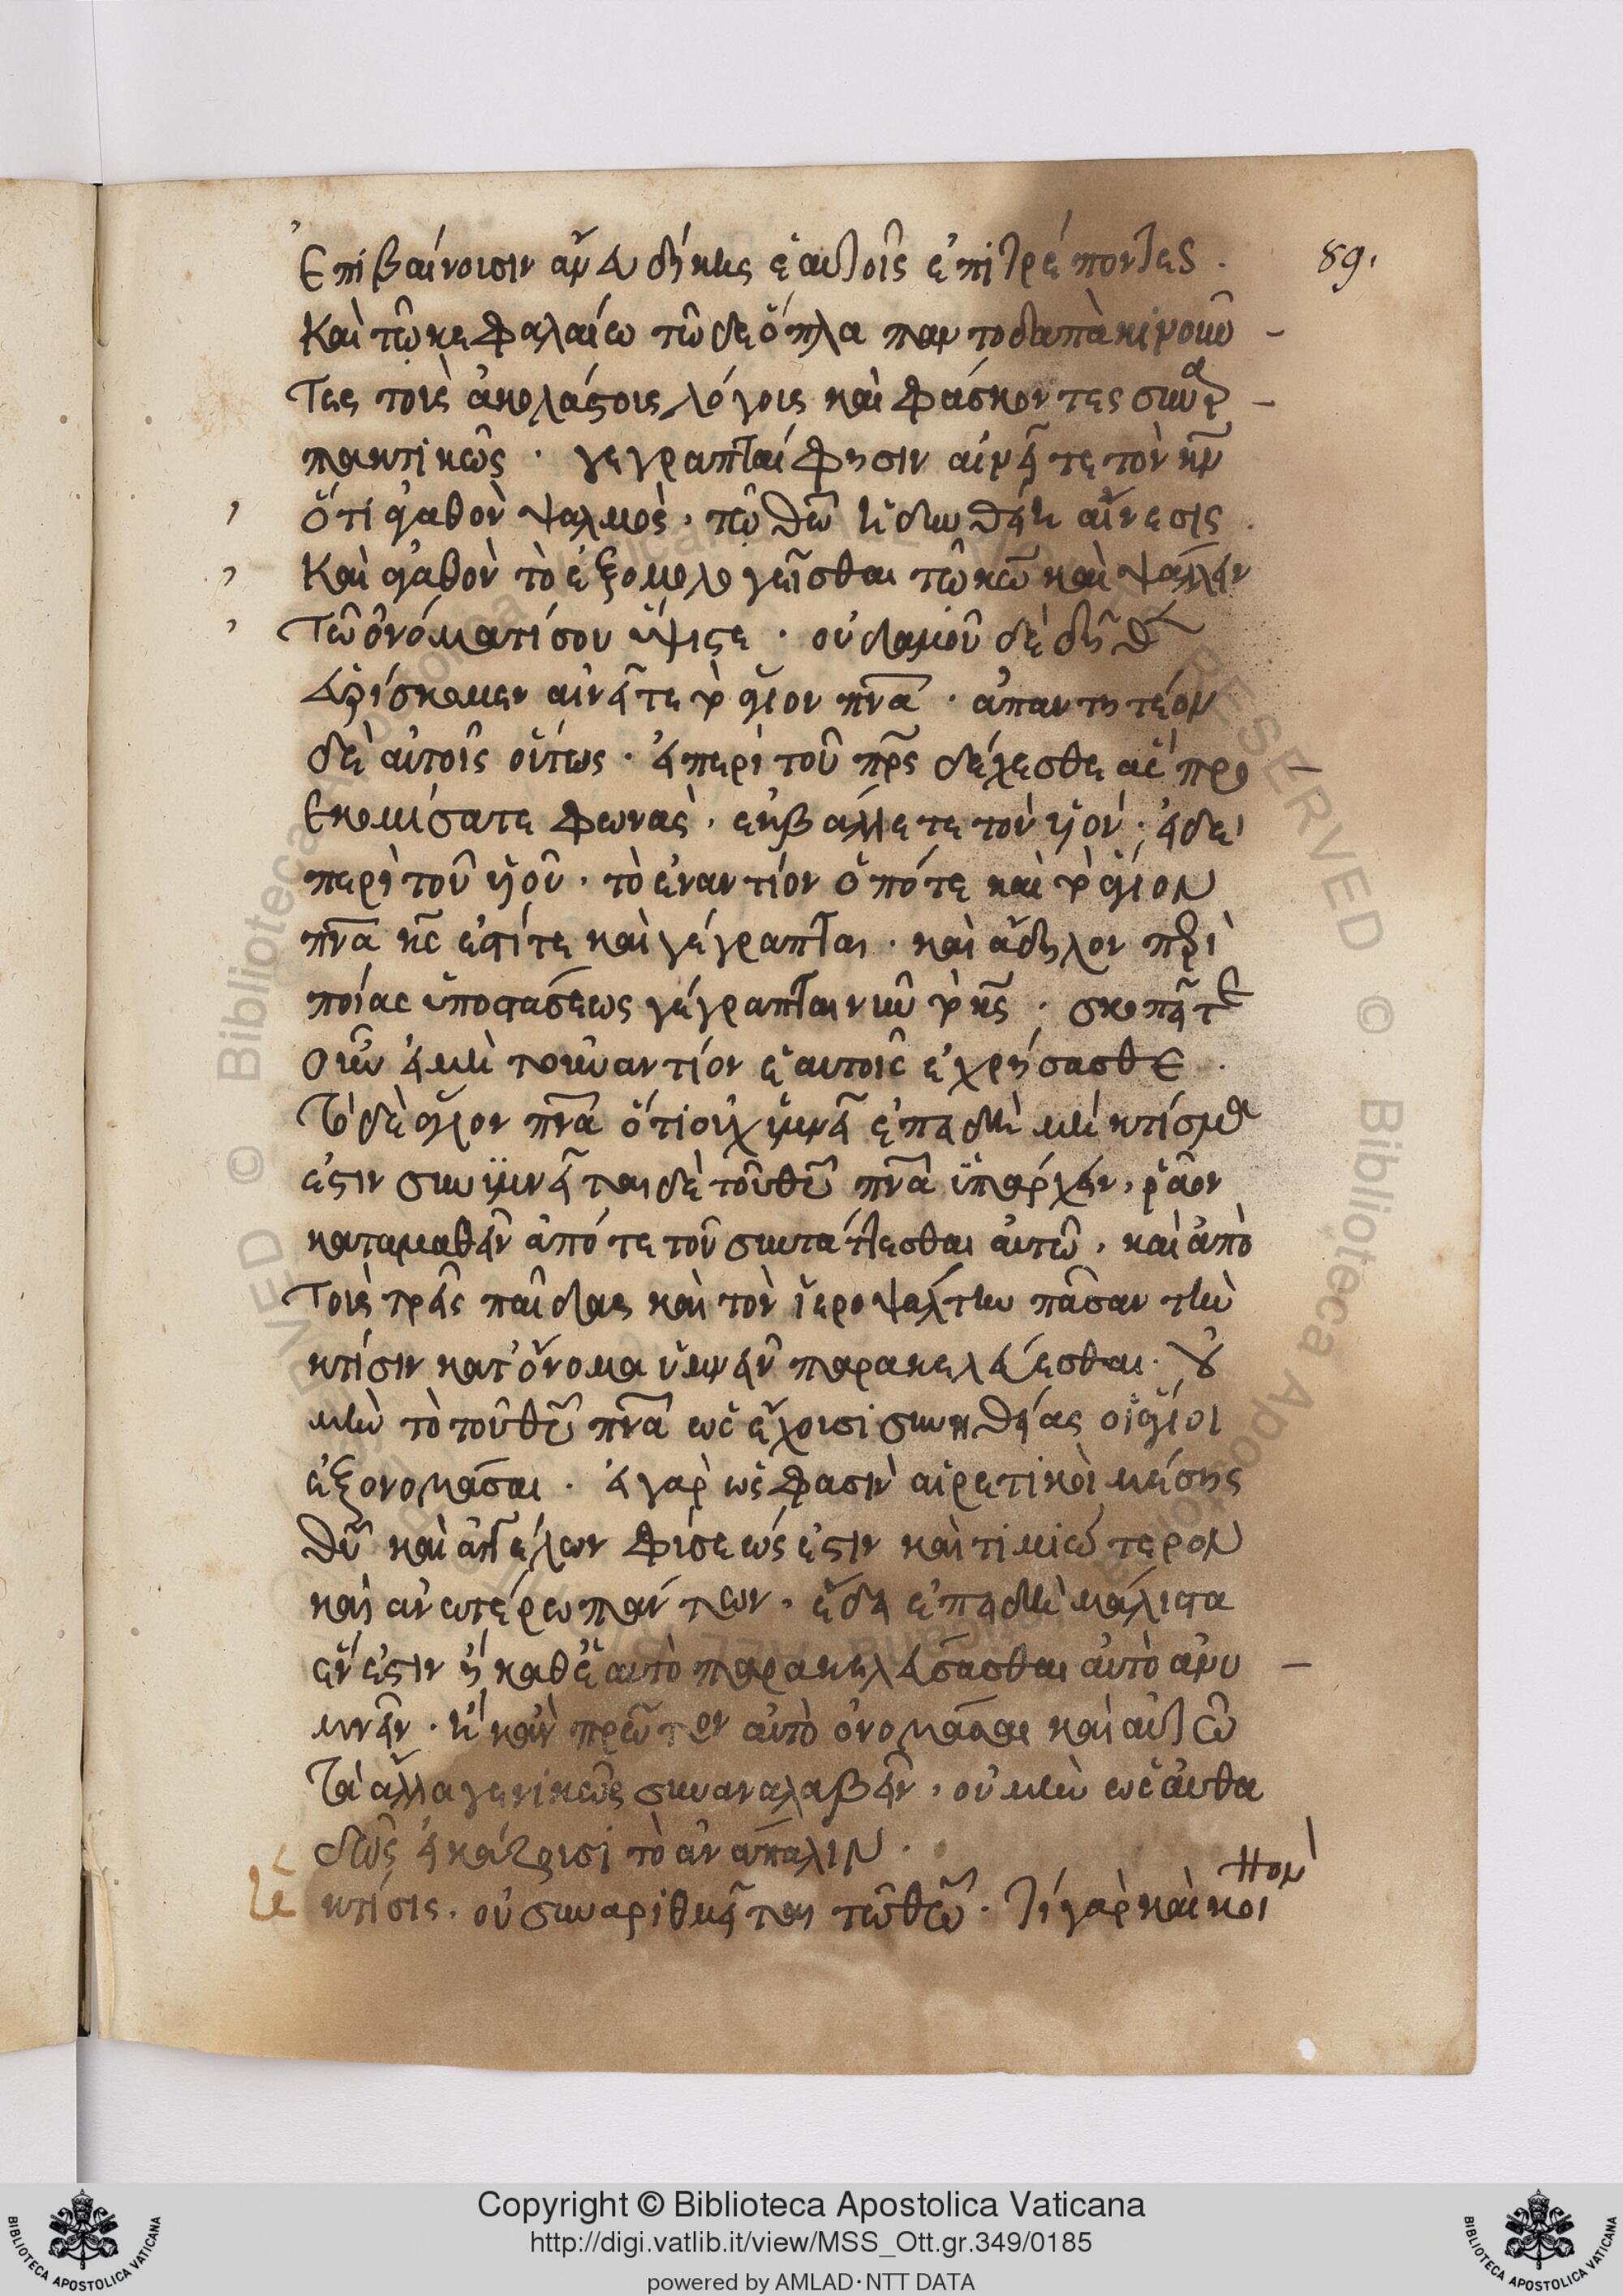 ἐπιβαίνουσιν ἀνευ δίκης ἑαυτοῖς ἐπιτρέποντες .
89.
καὶ τῶ κεφαλαίω τῶδε ὅπλα παντοδαπὰ κινοῦν –
τες τοὺς ἀκολάστους λόγους καὶ φάσκοντες συναρ –
πακτικῶς · γέγραπται φησιν αἰνεῖτε τὸν κν
ὅτι ἀγαθὸν ψαλμὸς , τῶ θεῶ ἡδυνθείη αἴνεσις .
καὶ ἀγαθὸν τὸ ἐξομολογεῖσθαι τῶ κῶ καὶ ψάλλειν
τῶ ὀνόματί σου ὕψιστε · οὐδαμοῦ δὲ δῆθεν
εὑρίσκομεν αἰνεῖτε τὸ ἅγιον πνα · ἀπαντητέον
δὲ αὐτοῖς οὕτως · εἰ περὶ τοῦ πρς δέχεσθε ἃς προ –
εκομίσατε φωνὰς , ἐκβάλλετε τὸν υἱόν · εἰ δὲ
περὶ τοῦ υἱοῦ , τὸ ἐναντίον ὁπότε καὶ τὸ ἅγιον
πνα κς ἐστί τε καὶ γέγραπται · καὶ ἄδηλον περὶ
ποίας ὑποστάσεως γέγραπται νῦν τὸ κς · σκοπεῖτε
οὖν εἰ μὴ τοὐναντίον ἑαυτοῖς ἐχρήσασθε .
τὸ δὲ ἅγιον πνα ὅτι οὐχ ὑμνεῖ ἐπειδὴ μὴ κτίσμα
ἐστιν συνυμνεῖται δὲ τοῦ θυ πνα ὑπάρχειν , ῥᾶον
καταμαθεῖν ἀπό τε τοῦ συντάττεσθαι αὐτῶ , καὶ ἀπὸ
τοὺς τρεῖς παῖδας καὶ τὸν ἱεροψάλτην πᾶσαν τὴν
κτίσιν κατ' ὄνομα ὑμνεῖν παρακελεύεσθαι · οὐ
μὴν τὸ τοῦ θυ πνα ὡς ἔχουσι συνηθείας οἱ ἅγιοι
ἐξονομάσαι . εἰ γὰρ ὥς φασιν αἱρετικοὶ μέσης
θυ καὶ ἀγγέλων φύσεώς ἐστιν καὶ τιμιώτερον
καὶ ἀνωτέρω πάντων , ἔδει ἐπειδὴ μάλιστα
ἕν ἐστιν ἢ καθ' ἑαυτὸ παρακελεύσασθαι αὐτὸ ἀνυ –
μνεῖν . ἢ κἂν πρῶτον αὐτὸ ὀνομάσαι καὶ αὐτῶ
τὰ ἄλλα γενικῶς συναναλαβεῖν , οὐ μὴν ὡς αὐθα
δῶς εἰκάζουσι τὸ ἀνάπαλιν .
κτίσις . οὐ συναριθμεῖται τῶ θεῶ · τί γὰρ καὶ κοι
Copyright © Biblioteca Apostolica Vaticana
http://digi.vatlib.it/view/MSS_Ott.gr.349/0185
powered by AMLAD·NTT DATA
BIBLIOTECA APOSTOLICA VATICANA
BIBLIOTECA APOSTOLICA VATICANA